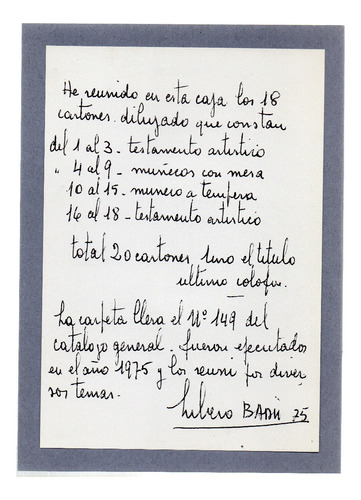 He reunido en esta caja los 18
cartones dibujado que constan
del 1 al 3 - testamento artistico
" 4 al 9 - muñecos con mesa
10 al 15 - muneco a tempera
16 al 18 - testamento artistico
total 20 cartones, uno el titulo
ultimo colofon.
La carpeta lleva el Nº 149 del
catalogo general. fueron ejecutados
en el año 1975 y los reuni por diver
sos temas.
Libero BADII 75